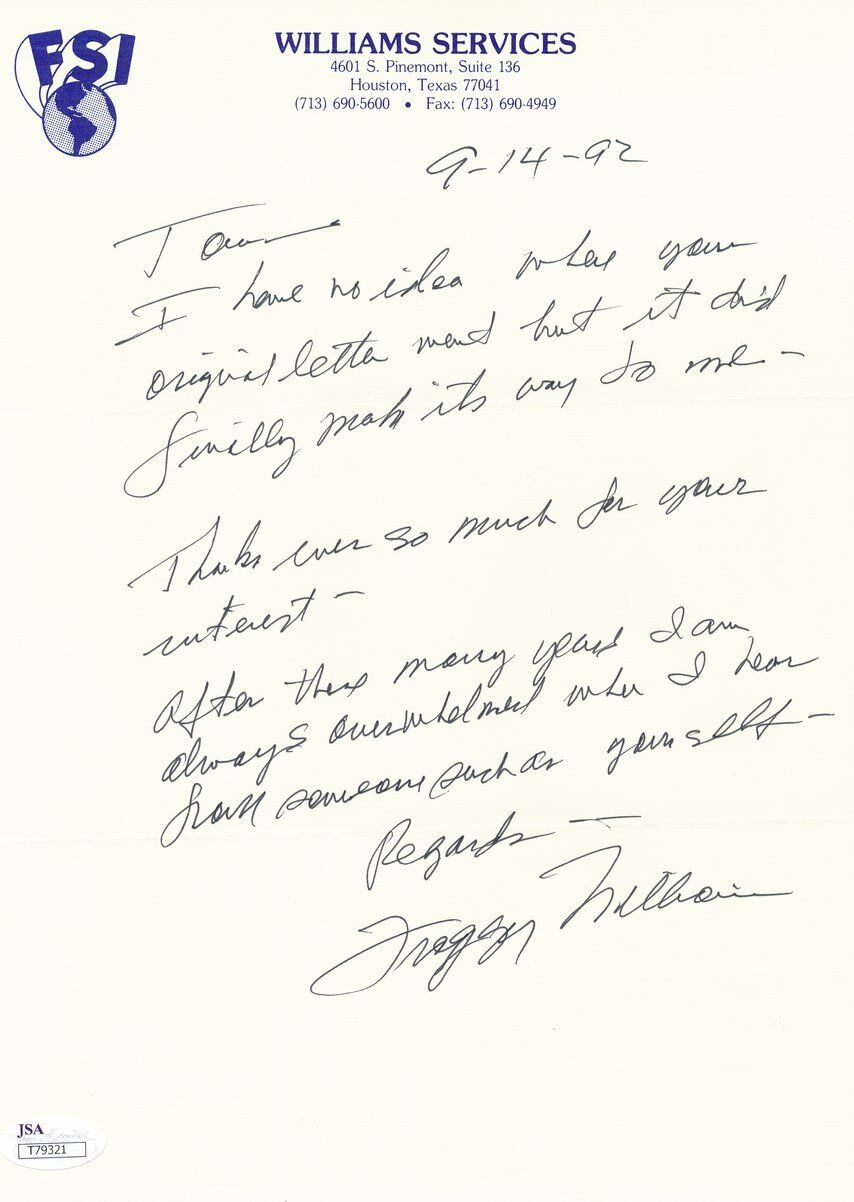 FSI
WILLIAMS SERVICES
4601 S. Pinemont, Suite 136
Houston, Texas 77041
(713) 690-5600 • Fax: (713) 690-4949
9-14-92
I have no idea where your
original letter went but it did
finally make its way to me -
Thanks ever so much for your
interest -
After these many years I am
always overwhelmed when I hear
from someone such as yourself -
Regards -
Williams
JSA
T79321